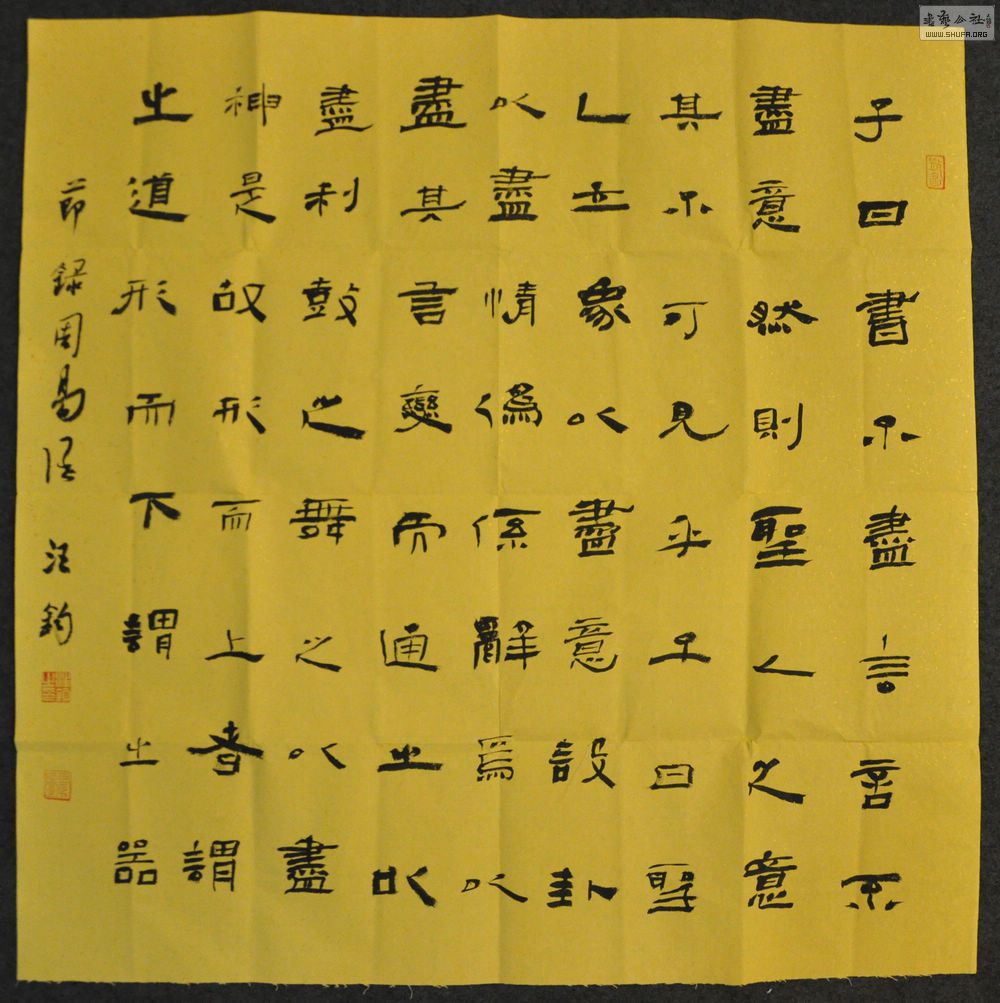 子曰書不盡言言不
盡意然則聖人之意
其不可見乎子曰聖
人立象以盡意設卦
以盡情偽係辭焉以
盡其言變而通之以
盡利鼓之舞之以盡
神是故形而上者謂
之道形而下謂之器
節録周易語 汪鈞
書藝公社
WWW.SHUFA.ORG